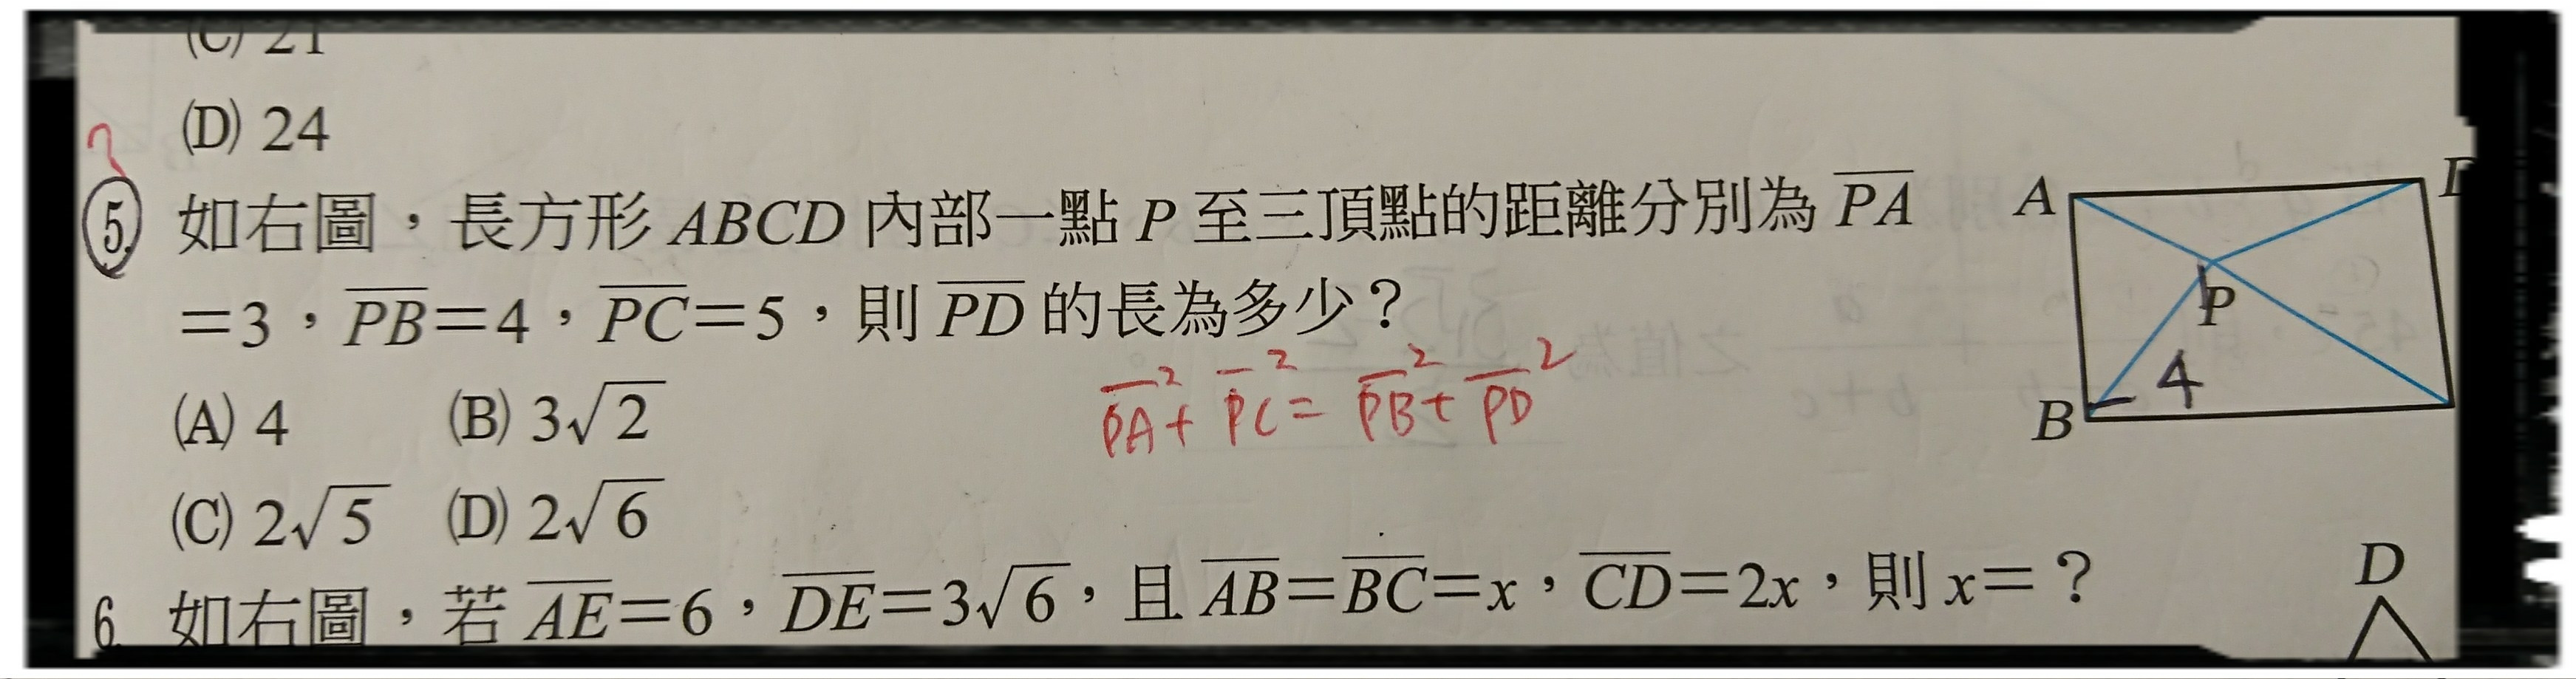 (C) 21
(D) 24
?
5. 如右圖，長方形 ABCD 內部一點 P 至三頂點的距離分別為 PA
=3，PB=4，PC=5，則 PD 的長為多少？
PA²+PC²=PB²+PD²
(A) 4 (B) 3√2
(C) 2√5 (D) 2√6
A
D
P
4
B
6. 如右圖，若 AE=6，DE=3√6，且 AB=BC=x，CD=2x，則 x=？
D